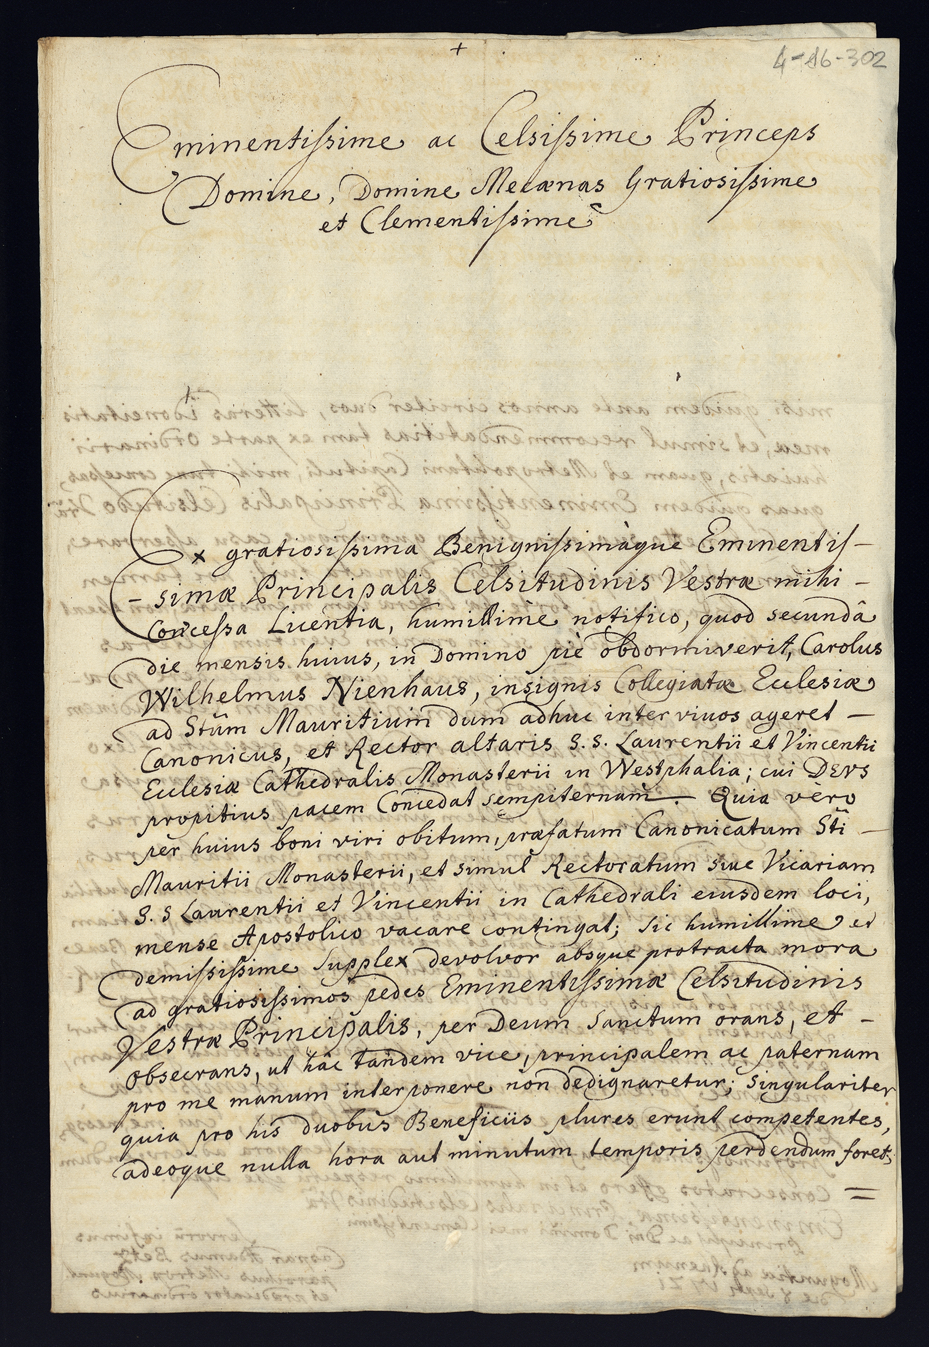 +
4-16-302
Eminentissime ac Celsissime Princeps
Domine, Domine Mecænas Gratiosissime
et Clementissime
Ex gratiosissima Benignissimàque Eminentis-
-simæ Principalis Celsitudinis Vestræ mihi -
Concessa Licentia, humillime notifico, quod secundâ
die mensis huius, in Domino piè obdormiverit, Carolus
Wilhelmus Nienhaus, insignis Collegiatæ Ecclesiæ
ad Stūm Mauritium dum adhuc inter vivos ageret -
Canonicus, et Rector altaris S.S. Laurentii et Vincentii
Ecclesiæ Cathedralis Monasterii in Westphalia; cui DEVS
propitius pacem Concedat sempiternam. Quia vero
per huius boni viri obitum, præfatum Canonicatum Sti -
Mauritii Monasterii, et simul Rectoratum sive Vicariam
S.S Laurentii et Vincentii in Cathedrali eiusdem loci,
mense Apostolico vacare contingat; sic humillime et
demississime supplex devolvor absque protracta mora
ad gratiosissimos pedes Eminentissimæ Celsitudinis
Vestræ Principalis, per Deum Sanctum orans, et -
obsecrans, ut hâc tandem vice, principalem ac paternam
pro me manum interponere non dedignaretur; singulariter
quia pro his duobus Beneficiis plures erunt competentes,
adeoque nulla hora aut minutum temporis perdendum foret,
=